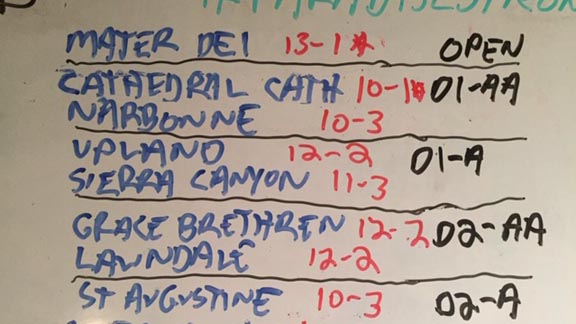 MATER DEI 13-1* OPEN
CATHEDRAL CATH 10-1* D1-AA
NARBONNE 10-3
UPLAND 12-2 D1-A
SIERRA CANYON 11-3
GRACE BRETHREN 12-2 D2-AA
LAWNDALE 12-2
ST AUGUSTINE 10-3 D2-A